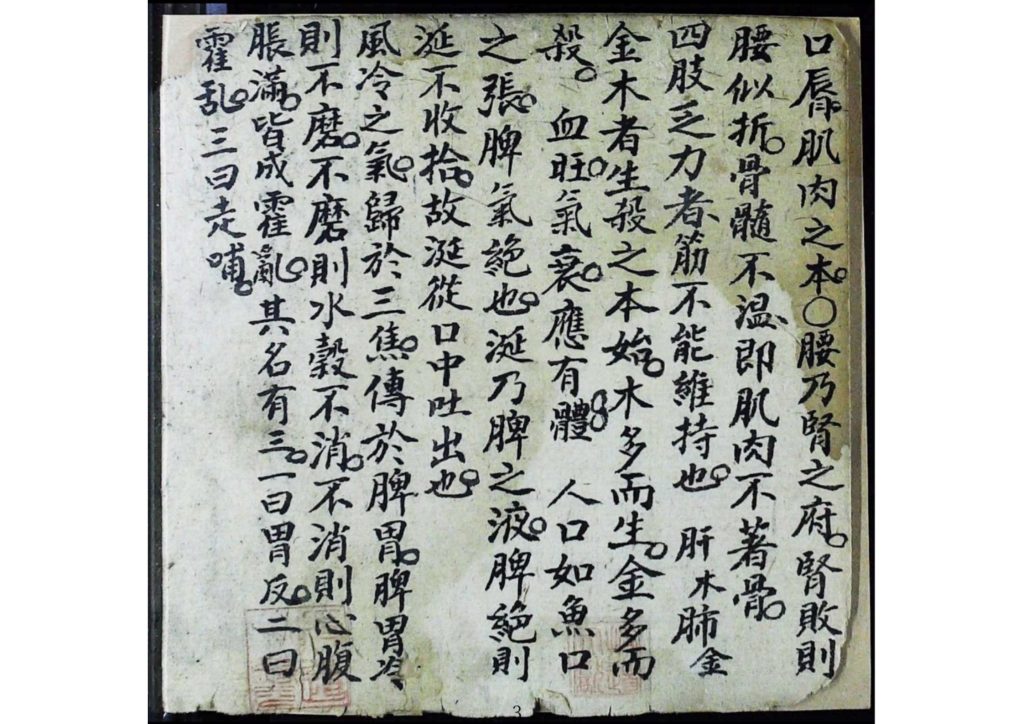 口脣肌肉之本。〇腰乃腎之府。腎敗則
腰似折。骨髓不温、即肌肉不著骨。
四肢乏力者、筋不能維持也。 肝木肺金
金木者生殺之本始。木多而生。金多而
殺。 血旺。氣衰。應有體。 人口如魚口
之張。脾氣絕也。涎乃脾之液。脾絕則
涎不收拾。故涎從口中吐出也。
風冷之氣。歸於三焦。傳於脾胃。脾胃冷
則不磨。不磨則水穀不消。不消則心腹
脹滿。皆成霍亂。其名有三。一曰胃反。二曰
霍乱。三曰走哺。
3